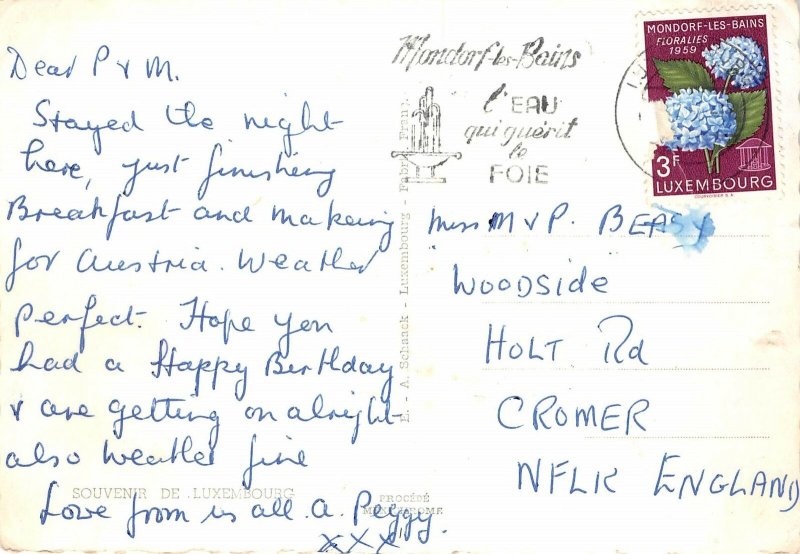 Dear P & M.
Stayed the night
here, just finishing
Breakfast and makeing
for Austria. Weather
perfect. Hope you
had a Happy Birthday
& are getting on alright
also weather fine
Love from us all. A. Peggy.
XXX
SOUVENIR DE LUXEMBOURG
PROCÉDÉ
E. - A. Schaack - Luxembourg -
Mondorf-les-Bains
l'EAU
qui guérit
le
FOIE
MONDORF-LES-BAINS
FLORALIES
1959
3F
LUXEMBOURG
COURVOISIER S.A.
Miss M & P. BEASY
WOODSIDE
HOLT Rd
CROMER
NFLK ENGLAND